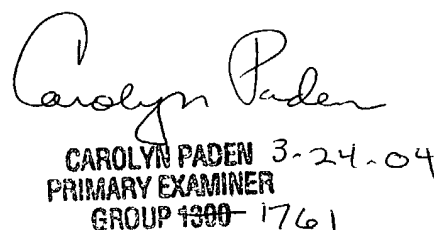 Carolyn Paden
CAROLYN PADEN 3-24-04
PRIMARY EXAMINER
GROUP 1300 1761